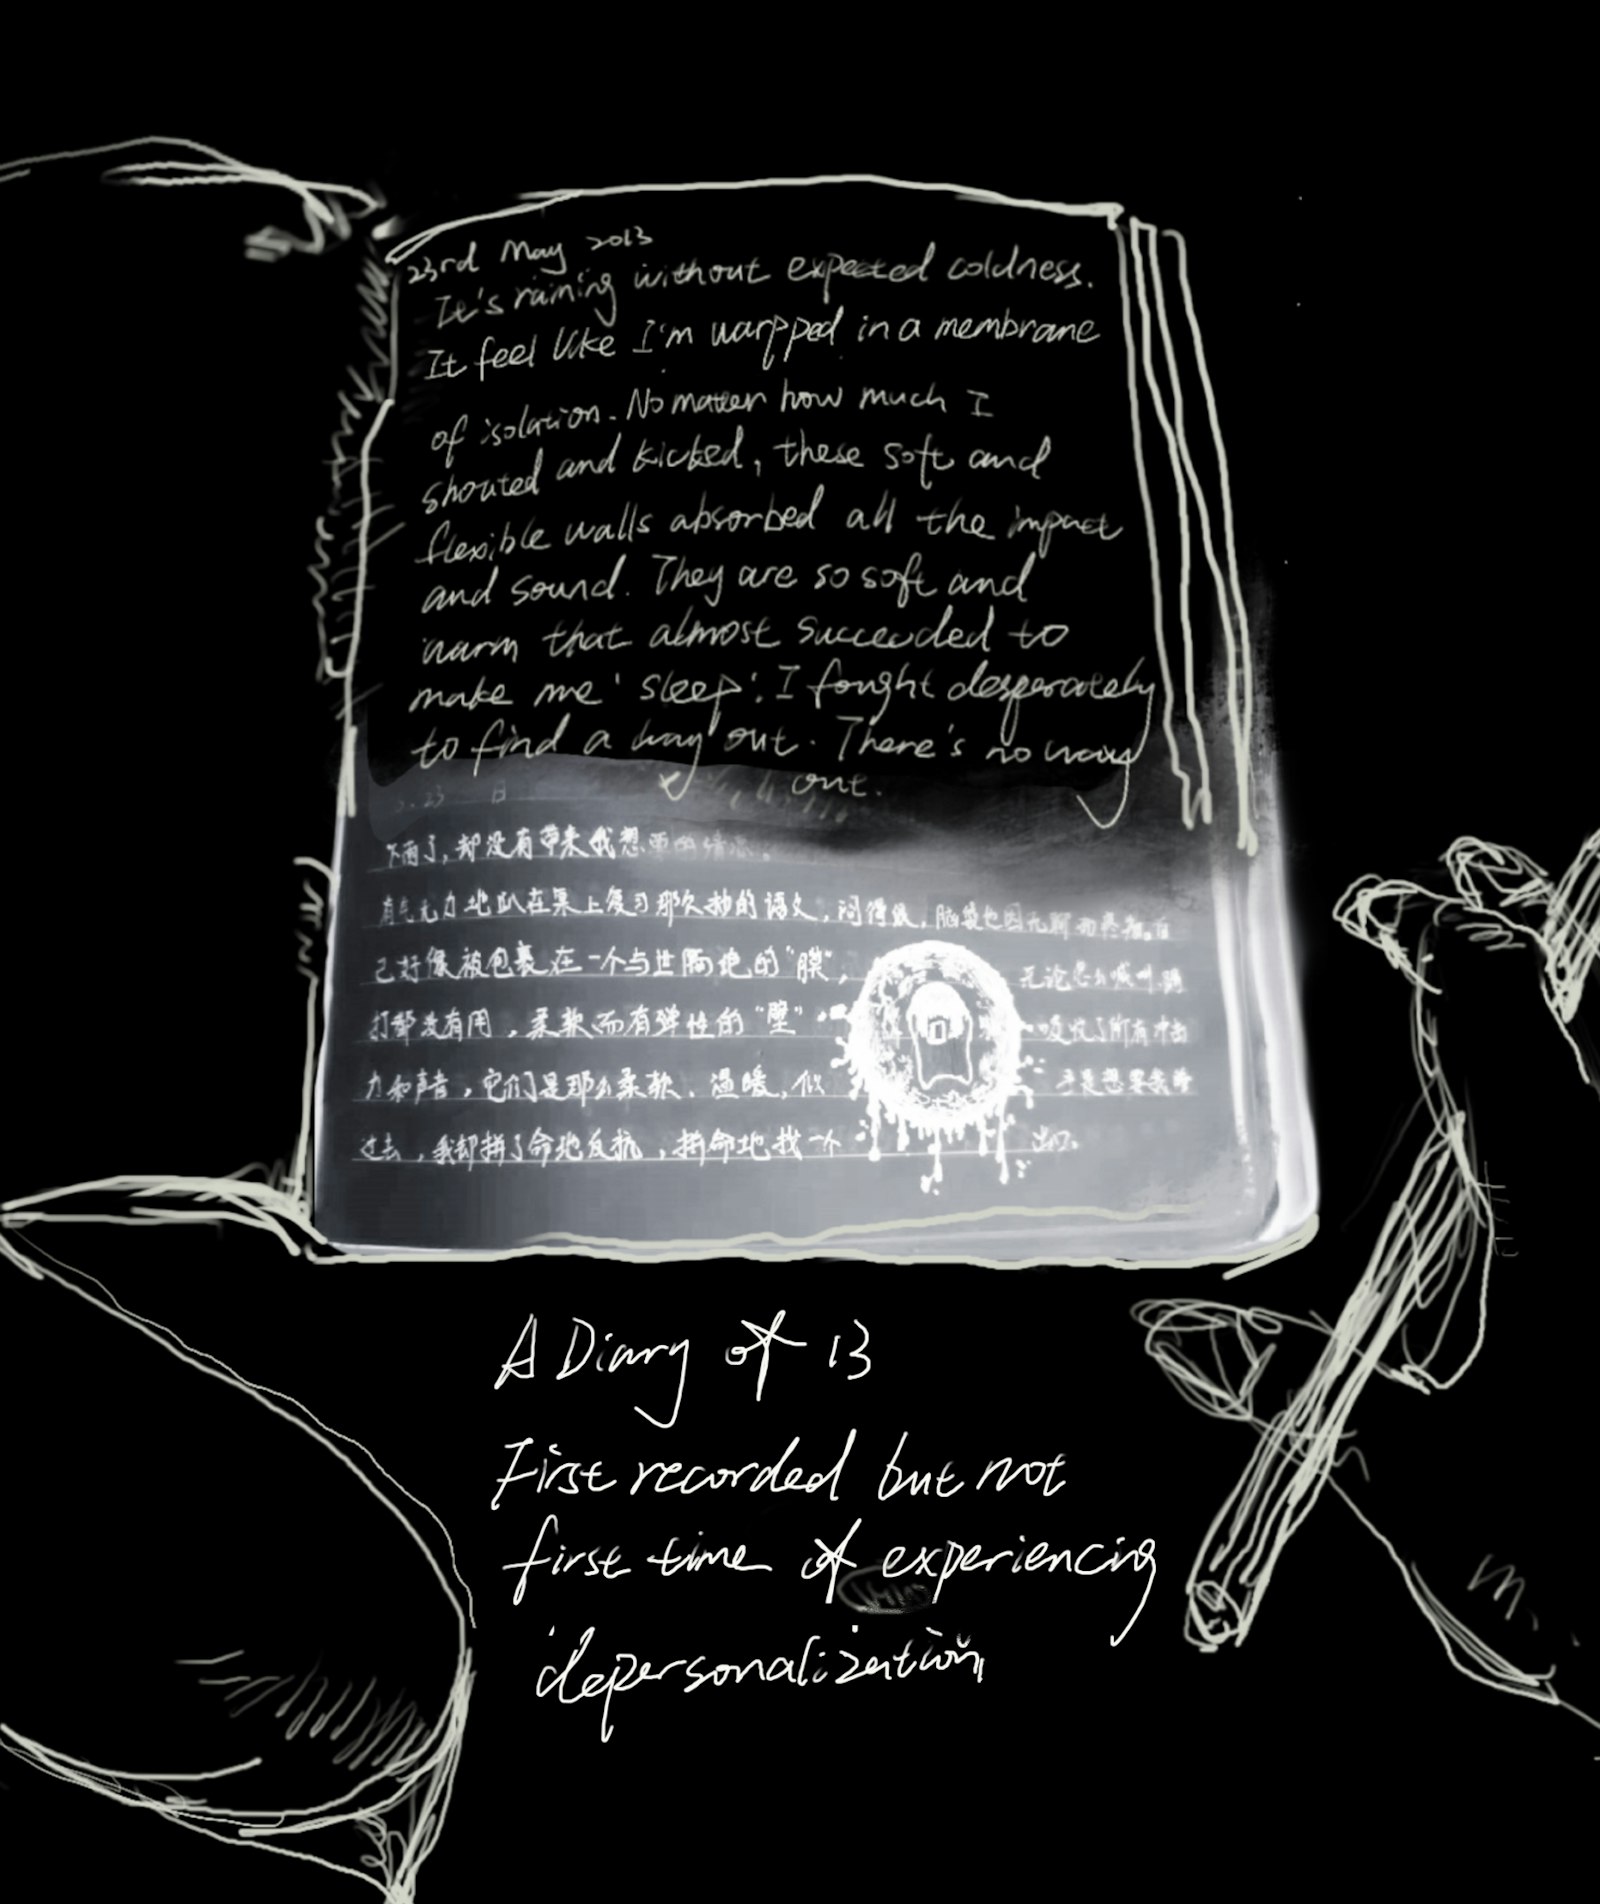 23rd May 2013
It's raining without expected coldness.
It feel like I'm warpped in a membrane
of isolation. No matter how much I
shouted and kicked, these soft and
flexible walls absorbed all the impact
and sound. They are so soft and
warm that almost succeeded to
make me 'sleep'. I fought desperately
to find a way out. There's no way
out.
5.23 日
下雨了，却没有带来我想要的情凉。
有气无力地趴在桌上复习那欠抄的语文，闷得很，脑袋也因无聊而疼痛。自
己好像被包裹在一个与世隔绝的“膜”， 无论怎么喊叫踢
打都没有用，柔软而有弹性的“壁” 吸收了所有冲击
力和声音，它们是那么柔软、温暖，似 乎是想要我睡
过去，我却拼了命地反抗，拼命地找一个 出口。
A Diary of 13
First recorded but not
first time of experiencing
depersonalization